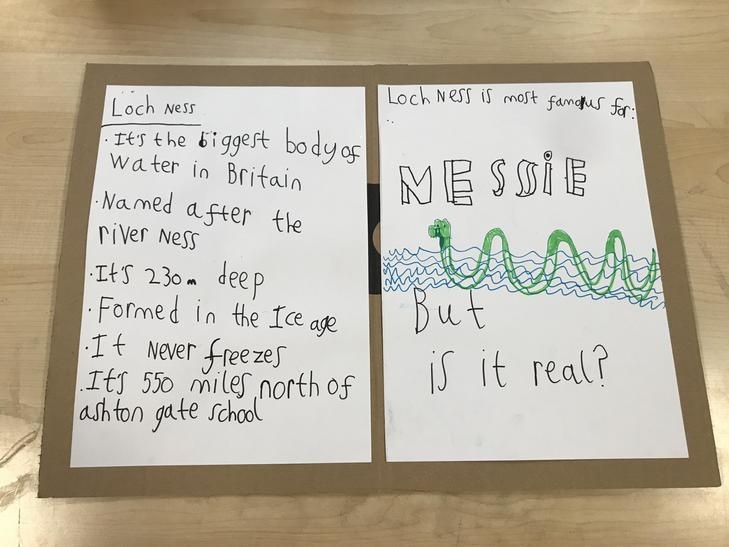 Loch Ness
· It's the biggest body of
water in Britain
· Named after the
river Ness
· It's 230m deep
· Formed in the Ice age
· It Never freezes
. It's 550 miles north of
ashton gate school
Loch Ness is most famous for:
NESSIE
But
is it real?